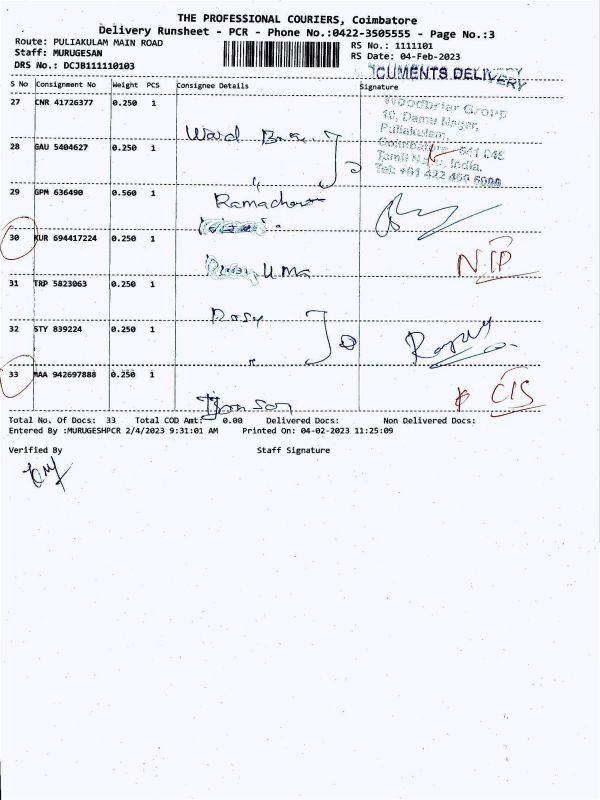 THE PROFESSIONAL COURIERS, Coimbatore
Delivery Runsheet - PCR - Phone No.:0422-3505555 - Page No.:3
Route: PULIAKULAM MAIN ROAD
RS No.: 1111101
Staff: MURUGESAN
RS Date: 04-Feb-2023
DRS No.: DCJB111110103
DOCUMENTS DELIVERY
S No Consignment No Weight PCS Consignee Details Signature
27 CNR 41726377 0.250 1
Woodbriar Group
10, Damu Nagar,
Puliakulam,
Coimbatore - 641 045
Tamil Nadu, India.
Ward
28 GAU 5404627 0.250 1
29 GPM 636490 0.560 1
30 KUR 694417224 0.250 1
Uma
NTP
31 TRP 5823063 0.250 1
Rosy
32 STY 839224 0.250 1
33 MAA 942697888 0.250 1
CIS
Total No. Of Docs: 33 Total COD Amt: 0.00 Delivered Docs: Non Delivered Docs:
Entered By :MURUGESHPCR 2/4/2023 9:31:01 AM Printed On: 04-02-2023 11:25:09
Verified By Staff Signature